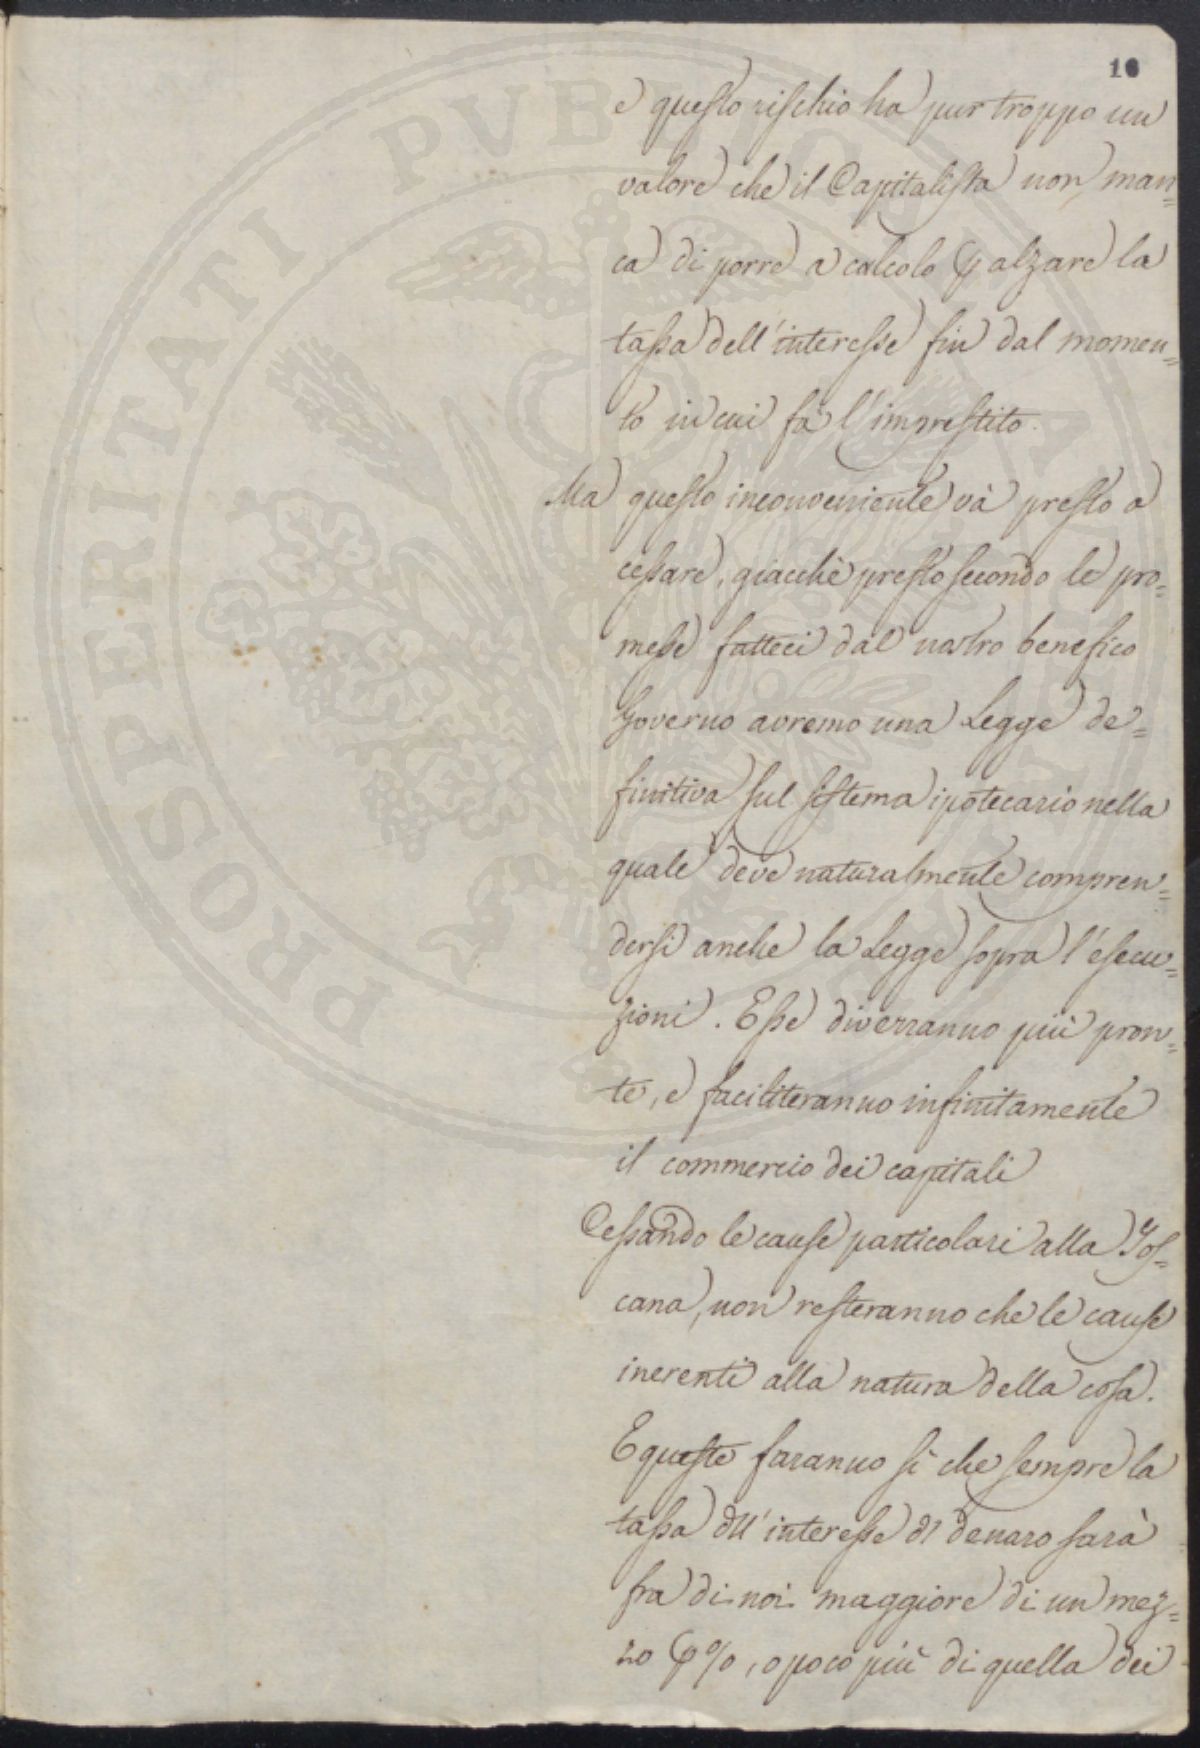 10
e questo rischio ha pur troppo un
valore che il Capitalista non man=
ca di porre a calcolo p alzare la
tassa dell'interesse fin dal momen=
to in cui fà l'imprestito.
Ma questo inconveniente và presto a
cessare, giacchè presto secondo le pro=
messe fatteci dal nostro benefico
Governo avremo una Legge de=
finitiva sul sistema ipotecario nella
quale deve naturalmente compren=
dersi anche la Legge sopra l'esecu=
zioni. Esse diverranno più pron=
te, e faciliteranno infinitamente
il commercio dei capitali
Cessando le cause particolari alla Tos=
cana, non resteranno che le cause
inerenti alla natura della cosa.
E queste faranno sì che sempre la
tassa dll'interesse dl denaro sarà
fra di noi maggiore di un mez=
zo p%, o poco più di quella dei
PROSPERITATI PVBLICAE